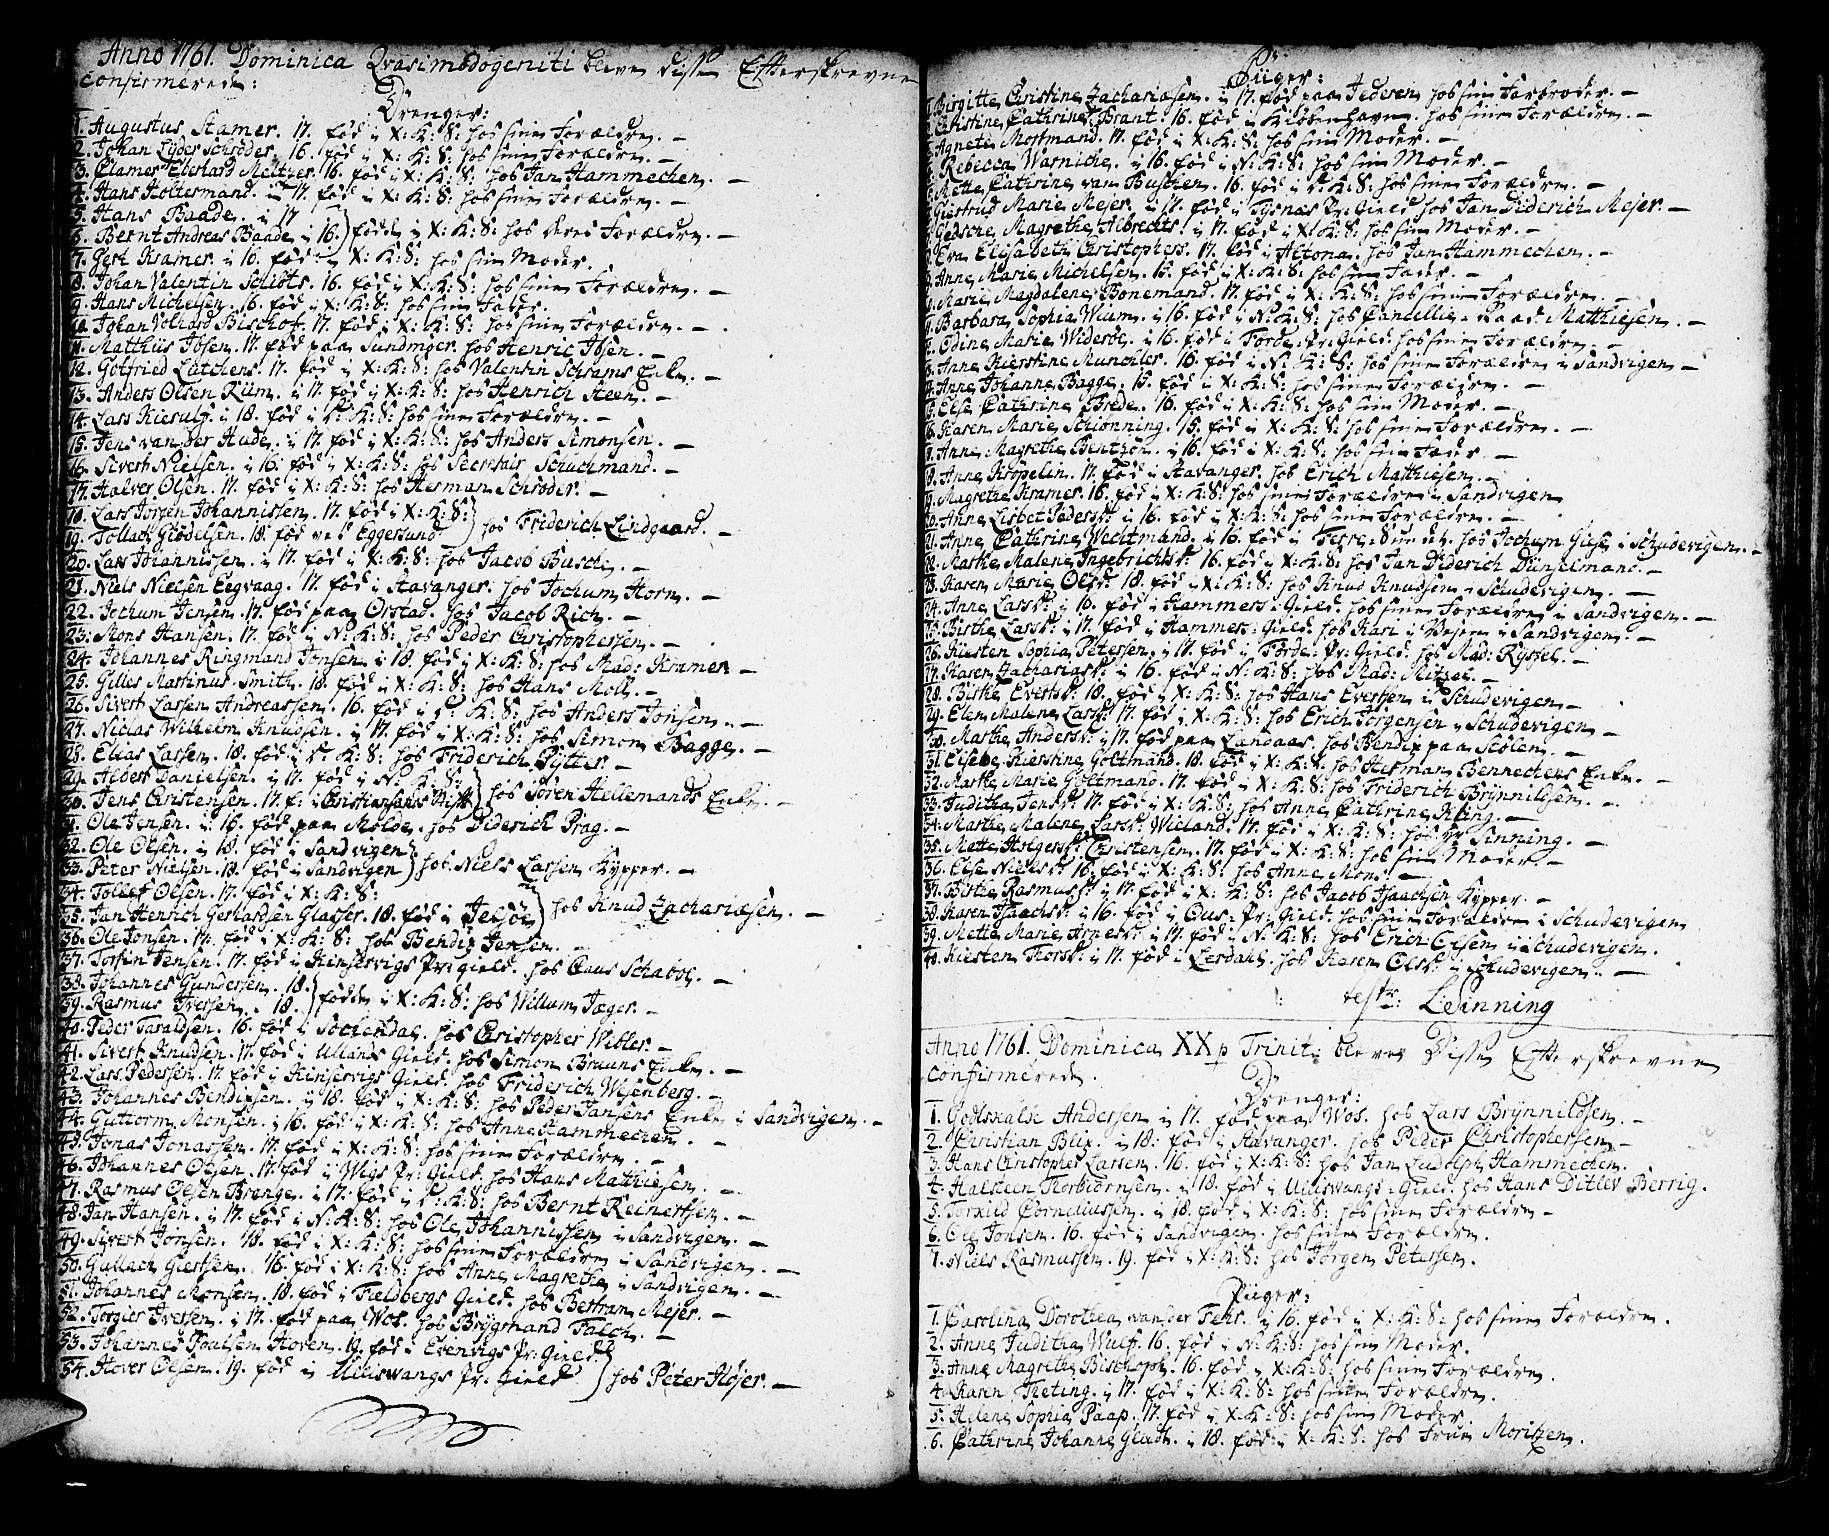 Anno 1761. Dominica Qvasimodogeniti bleve disse Efterskrevne
Confirmerede:
Drenger:
1. Augustus Stamer. 17. fød i X: K: S: hos sine Forældre. –
2. Johan Lyder Schrøder. 16. fød i X: K: S: hos sine Forældre. –
3. Clamer Eberhard Meltzer. 16. fød i X: K: S: hos Jan Hammechen. –
4. Hans Holtermand. i 17. fød i X: K: S: hos sine Forældre. –
5. Hans Baade. i 17.
6. Bernt Andreas Baade i 16. } fødde i X: K: S: hos deres Forældre. –
7. Gert Kramer. i 16. fød i X: K: S: hos sin Moder.
8. Johan Valentin Schiøts. 16. fød i X: K: S: hos sine Forældre. –
9. Hans Michelsen. 16. fød i X: K: S: hos sin Fader.
10. Johan Volhard Bischof. 17. fød i X: K: S: hos sine Forældre. –
11. Matthiis Ibsen. 17. fød paa Sundmøer. hos Henric Ibsen. –
12. Gotfried Lütchens. 17. fød i X: K: S: hos Valentin Schrams Enke. –
13. Anders Olsen Riim. i 17. fød i X: K: S: hos Henrich Steen. –
14. Lars Kierulf i 18. fød i X: K: S: hos sine Forældre. –
15. Jens van der Hude. i 17. fød i X: K: S: hos Anders Simonsen. –
16. Sivert Nielsen. i 16. fød i X: K: S: hos Secretair Schuchmand. –
17. Halver Olsen. 17. fød i X: K: S: hos Herman Schrøder. –
18. Lars Jørgen Johannissen. 17. fød i X: K: S:
19. Tollach Giødelsen. 18. fød ved Eggersund } hos Friderich Lindgaard. –
20. Lars Johannissen. i 17. fød i X: K: S: hos Jacob Busch. –
21. Niels Nielsen Eegvaag. 17. fød i Stavanger. hos Jochum Horn. –
22. Jochum Jensen. 17. fød paa Ørstad. hos Jacob Rich. –
23. Mons Hansen. 17. fød i N: K: S: hos Peder Christophersen. –
24. Johannes Ringmand Jonsen. i 18. fød i X: K: S: hos Mad: Kramer –
25. Gilles Martinus Smith. 18. fød i X: K: S: hos Hans Moll. –
26. Sivert Larsen Andreassen. 16. fød i X: K: S: hos Anders Jonsen. –
27. Niclas Wilhelm Knudsen. i 17. fød i X: K: S: hos Simon Bagge. –
28. Elias Larsen. 18. fød i X: K: S: hos Friderich Pytter –
29. Albert Danielsen. i 17. fød i N: K: S:
30. Jens Christensen. 17. f: i Christiansands Stift } hos Søren Hellemands Enke. –
31. Ole Jensen. i 16. fød paa Molde. hos Diderich Prag. –
32. Ole Olsen. i 18. fød i Sandvigen
33. Peter Nielsen. 18. fød i Sandvigen } hos Niels Larsen Kypper. –
34. Tollef Olsen. 17. fød i X: K: S:
35. Jan Henrich Gerhardsen Glasser. 18. fød i Jelsøe } hos Knud Zachariæsen. –
36. Ole Jonsen. 17. fød i X: K: S: hos Bendix Jensen. –
37. Torfin Jensen. 17. fød i Kinservigs Pr: gield. hos Claus Schabol. –
38. Johannes Gundersen. 18.
39. Rasmus Iversen. 18. } fødde i X: K: S: hos Willum Jæger. –
40. Peder Taraldsen. 16. fød i Sochendal. hos Christopher Wibler. –
41. Sivert Knudsen. 17. fød i Ullands Gield. hos Simon Bruuns Enke. –
42. Lars Pedersen. 17. fød i Kinservigs Gield. hos Friderich Wesenberg. –
43. Johannes Bendixsen. i 18. fød i X: K: S: hos Peder Jansens Enke i Sandvigen. –
44. Guttorm Monsen. i 16. fød i X: K: S: hos Anne Hammechen. –
45. Jonas Jonassen. 17. fød i X: K: S: hos sine Forældre. –
46. Johannes Olsen. 17. fød i Wigs Pr: Gield. hos Hans Mathiesen. –
47. Rasmus Olsen Brenge. i 17. fød i X: K: S: hos Bernt Reinertsen. –
48. Jan Hansen. i 17. fød i N: K: S: hos Ole Johannissen i Sandvigen. –
49. Sivert Jonsen. 18. fød i X: K: S: hos sine Forældre i Sandvigen. –
50. Gullach Giertsen. 16. fød i X: K: S: hos Anne Magrethe i Sandvigen. –
51. Johannes Monsen. 18. fød i Fieldbergs Gield. hos Bertram Mejer. –
52. Torgier Iversen. i 17. fød paa Wos. hos Brygmand Falch. –
53. Johannes Poulsen Hoven. 19. fød i Evenvigs Pr: Gield.
54. Hover Olsen. 19. fød i Ullswangs Pr: Gield } hos Peter Høyer. –
Piiger:
1. Birgitte Christine Zachariæsen. i 17. fød paa Jederen hos sin Farbroder. –
2. Christine Cathrine Brant. 16. fød i Kiøbenhavn. hos sine Forældre. –
3. Agnete Mostmand. 17. fød i X: K: S: hos sin Moder. –
4. Rebecca Warniche. i 16. fød i N: K: S: hos sin Moder. –
5. Mette Cathrine van Buschen. 16. fød i X: K: S: hos sine Forældre. –
6. Giertrud Marie Mejer. i 17. fød i Tysnæs Pr: Gield. hos Jan Diderich Mejer. –
7. Gedsche Magrethe Albrechts. i 17. fød i X: K: S: hos sin Moder. –
8. Eva Elisabeth Christophers. 17. fød i Altona. hos Jan Hammechen. –
9. Anne Marie Michelsen. 15. fød i X: K: S: hos sin Fader. –
10. Marie Magdalene Bonemand. 17. fød i X: K: S: hos sine Forældre. –
11. Barbara Sophia Wium. i 16. fød i N: K: S: hos Cancellie-Raad Matthiesen. –
12. Odine Marie Widerøe. i 16. fød i Førde-Pr: Gield. hos sine Forældre. –
13. Anne Kierstine Munchler. 16. fød i N: K: S: hos sine Forældre i Sandvigen –
14. Anne Johanne Bagge. 15. fød i X: K: S: hos sine Forældre. –
15. Else Cathrine Brede. 16. fød i X: K: S: hos sin Moder. –
16. Karen Marie Schiønning. 15. fød i X: K: S: hos sine Forældre. –
17. Anne Magrethe Bentzon. i 16. fød i X: K: S: hos sin Fader. –
18. Anne Kröpelin. 17. fød i Stavanger. hos Erich Matthiesen. –
19. Magrethe Kramer. 16. fød i X: K: S: hos sine Forældre i Sandvigen
20. Anne Lisbet Peders: i 16. fød i X: K: S: hos sine Forældre. –
21. Anne Cathrine Wechtmand. i 16. fød i hos Jochum Giese i Schudevigen. –
22. Marthe Malene Ingebrichts: i 16. fød i X: K: S: hos Jan Diderich Dünselmand. –
23. Karen Marie Olsd: 18. fød i X: K: S: hos Knud Knudsen i Schudevigen. –
24. Anne Larsd: i 16. fød i Hammers-Gield. hos sine Forældre i Sandvigen. –
25. Birthe Larsd: i 17. fød i Hammers-Gield. hos Kari i Bøjen i Sandvigen. –
26. Kiersten Sophia Petersen. i 17. fød i Førde-Pr: Gield. hos Mad: Ryssel. –
27. Karen Zachariasd: i 16. fød i N: K: S: hos Mad: Mitzel. –
28. Birthe Evertsd: 18. fød i X: K: S: hos Hans Evertsen i Schudevigen –
29. Elen Malene Larsd: 17. fød i X: K: S: hos Erich Jørgensen i Schudevigen –
30. Marthe Andersd: i 17. fød paa Landaas. hos Bendix paa Scølen. –
31. Elsebe Kierstine Goltmand. 18. fød i X: K: S: hos Herman Bennechens Enke. –
32. Marthe Marie Goltmand. 17. fød i X: K: S: hos Friderich Brynnildsen. –
33. Juditha Jensd: 17. fød i X: K: S: hos Anne Cathrine Kling. –
34. Marthe Malene Larsd: Wieland. 17. fød i X: K: S: hos Hr Sinning. –
35. Mette Holgersd: Christensen. 17. fød i X: K: S: hos sin Moder. –
36. Else Nielsd: 16. fød i X: K: S: hos Anne Mons: –
37. Birthe Rasmusd: i 17. fød i X: K: S: hos Jacob Isaachsen Kypper. –
38. Karen Isaachsd: i 16. fød i Ous-Pr: Gield. hos sine Forældre i Schudevigen
39. Mette Marie Arnesd: i 17. fød i N: K: S: hos Erich Olsen i Schudevigen.
40. Kiersten Thorsd: i 17. fød i Lerdahl. hos Karen Olsd: i Schudevigen. –
testr: LSinning
Anno 1761. Dominica XX p Trinit: bleve Disse Efterskrevne
Confirmerede.
Drenger:
1. Godtskalk Andersen i 17. fød paa Wos. hos Lars Brynnildsen. –
2. Christian Blix. i 18: fød i Stavanger. hos Peder Christophersen –
3. Hans Christopher Larsen. 16. fød i X: K: S: hos Jan Ludolph Hammechen.
4. Halsteen Thorbiørnsen. i 18. fød i Ullswangs-Gield. hos Hans Ditlev Berrig.
5. Torkild Corneliussen. i 18. fød i X: K: S: hos sine Forældre –
6. Ole Jonsen. 16. fød i Sandvigen. hos sine Forældre.
7. Niels Rasmussen. 19. fød i X: K: S: hos Jørgen Petersen.
Piiger:
1. Carolina Dorothea van der Fehr. i 16. fød i X: K: S: hos sine Forældre.
2. Anne Juditha Wulf. 16. fød i N: K: S: hos sin Moder.
3. Anne Magrethe Bischoph. 16. fød i X: K: S: hos sine Forældre.
4. Karen Theting. i 17. fød i X: K: S: hos sine Forældre.
5. Helene Sophia Paap. 17. fød i X: K: S: hos sin Moder.
6. Cathrine Johanne Gladt. i 18. fød i X: K: S: hos Frue Moritzen.